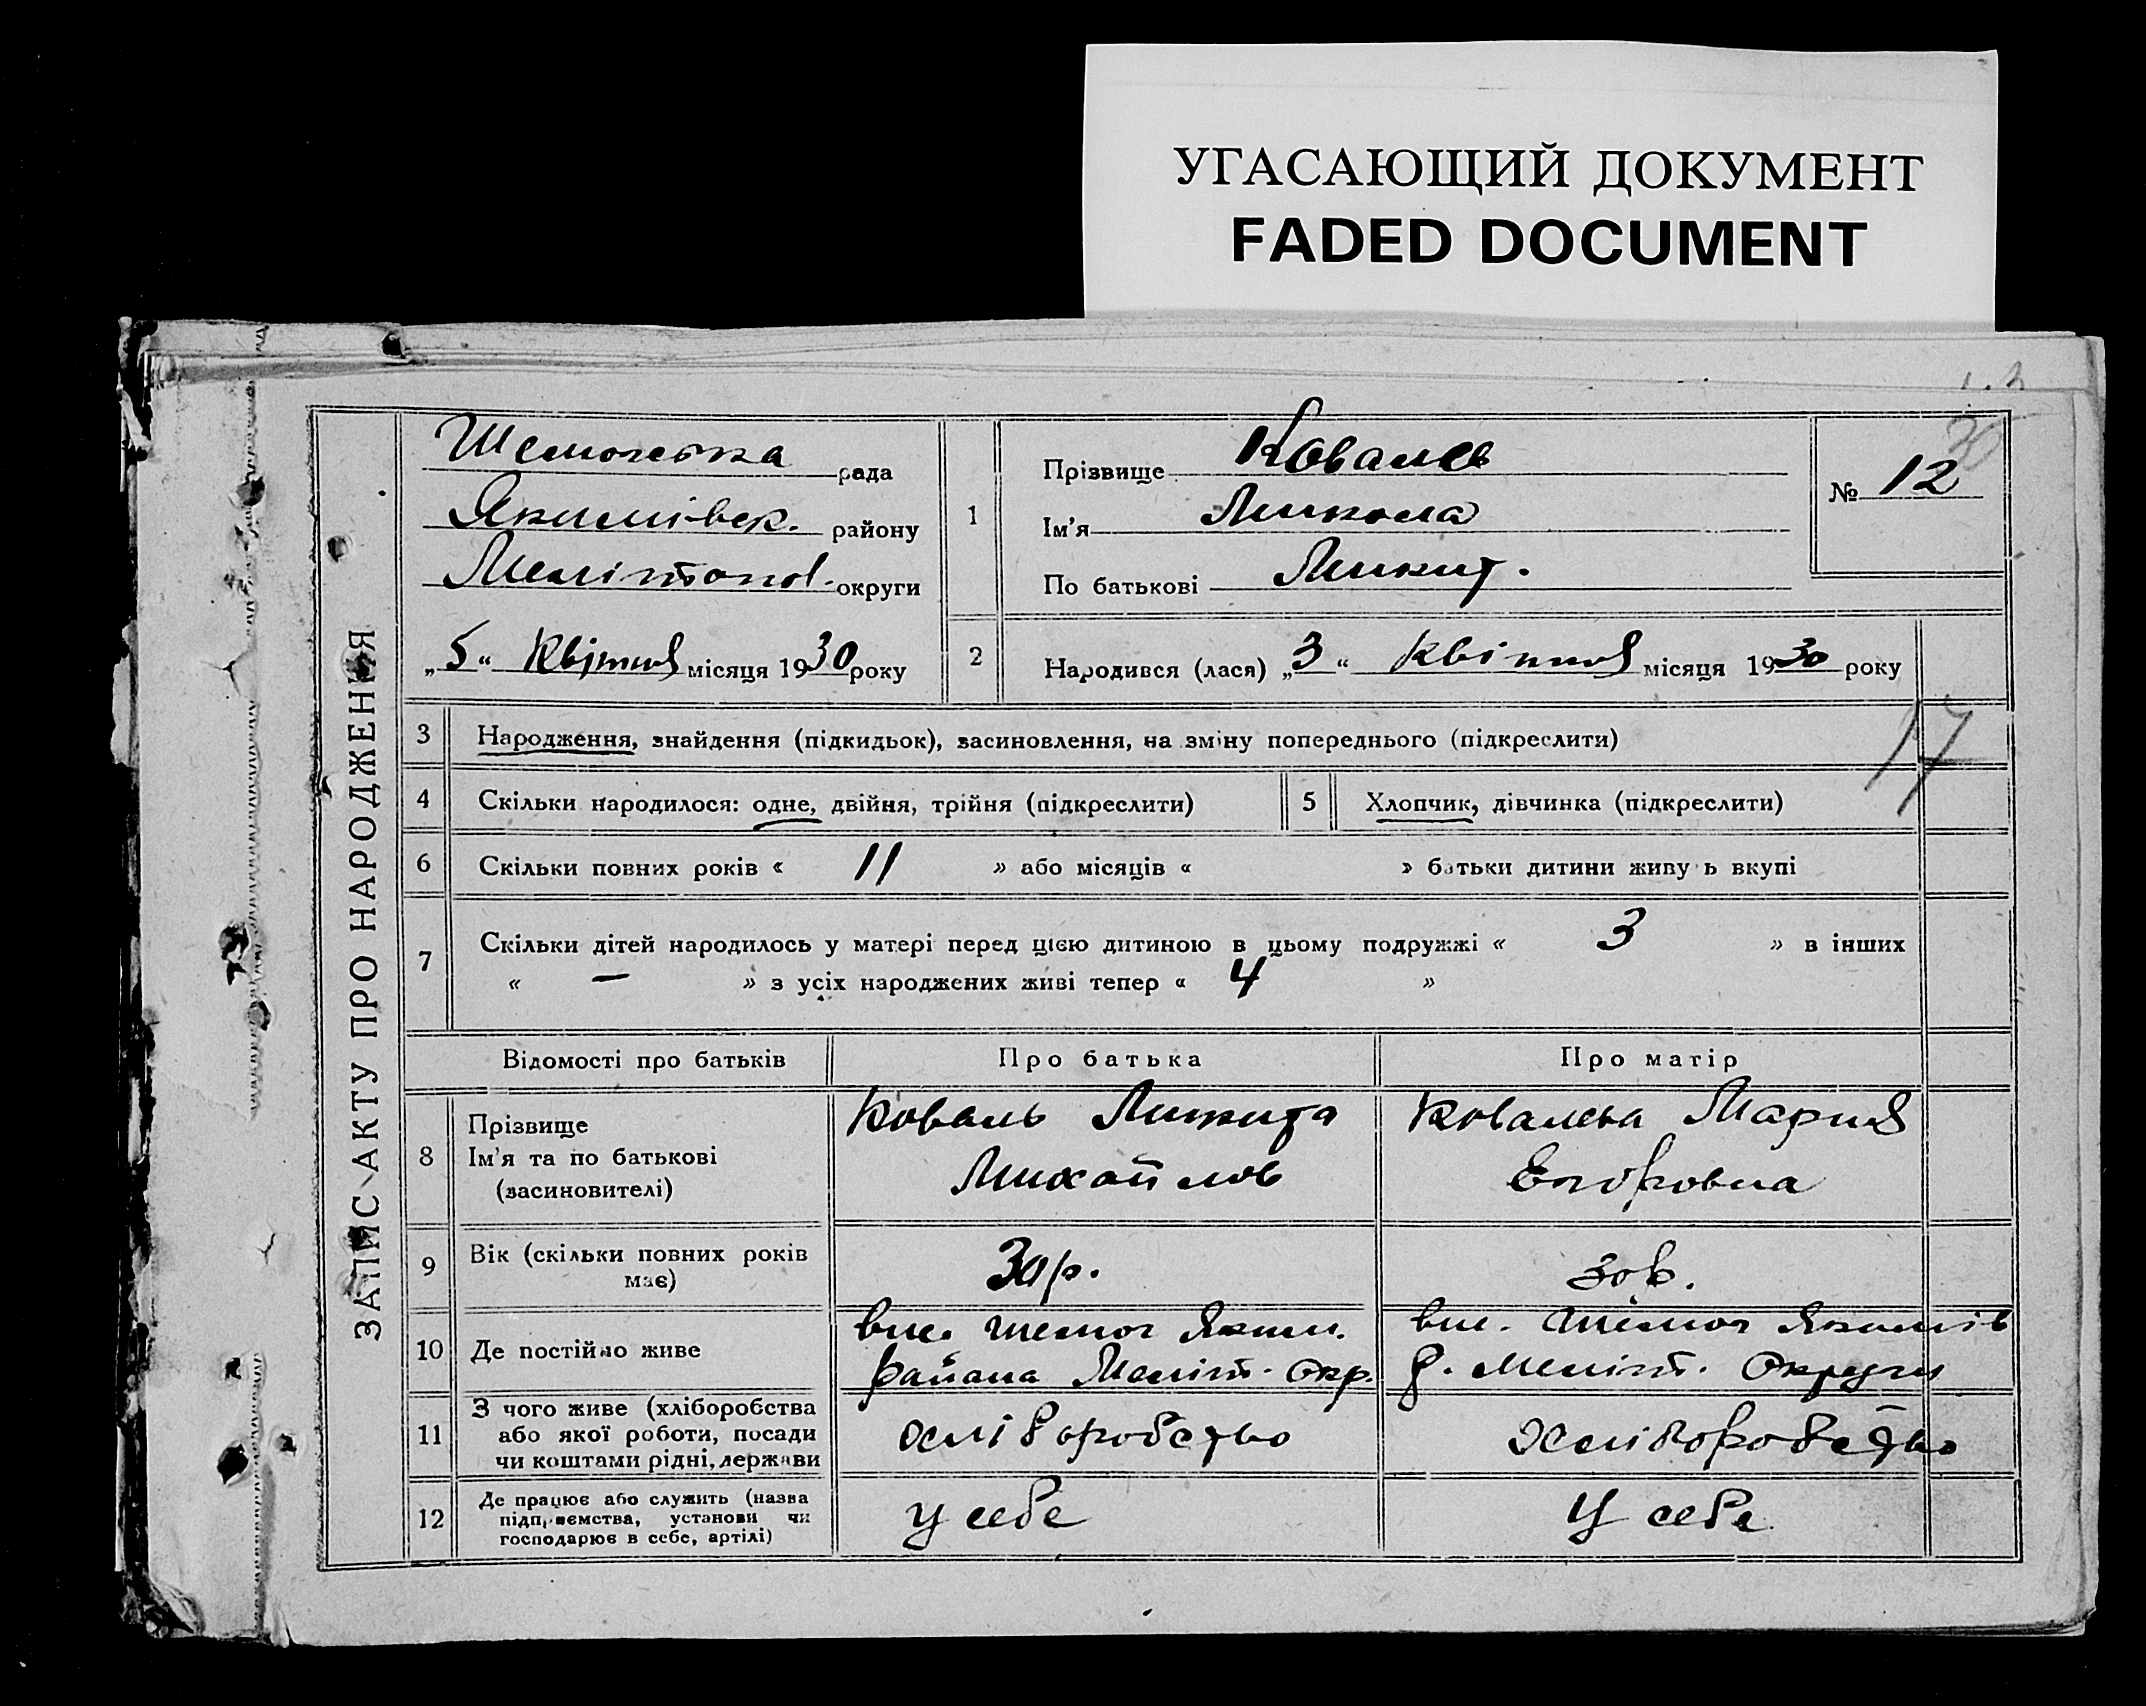 УГАСАЮЩИЙ ДОКУМЕНТ
FADED DOCUMENT
ЗАПИС АКТУ ПРО НАРОДЖЕННЯ
рада
Якимівск. району
Мелітопол. округи
„5“ Квітня місяця 1930 року
1
Прізвище Коваль
Ім'я Микола
По батькові Микит.
№ 12
30
2
Народився (лася) „3“ Квітня місяця 1930 року
17
3 Народження, знайдення (підкидьок), засиновлення, на зміну попереднього (підкреслити)
4 Скільки народилося: одне, двійня, трійня (підкреслити) 5 Хлопчик, дівчинка (підкреслити)
6 Скільки повних років « 11 » або місяців « » батьки дитини живуть вкупі
7 Скільки дітей народилось у матері перед цією дитиною в цьому подружжі « 3 » в інших
« — » з усіх народжених живі тепер « 4 »
Відомості про батьків Про батька Про матір
8 Прізвище
Ім'я та по батькові
(засиновителі)
Коваль Микита
Михайлов
Ковалева Мария
Егоровна
9 Вік (скільки повних років
має)
30 р.
30 р.
10 Де постійно живе
вис. Шемот Яким.
района Меліт. Окр.
вис. Шемот Якимів
р. Меліт. Округи
11 З чого живе (хліборобства
або якої роботи, посади
чи коштами рідні, держави
хліборобство
хліборобство
12 Де працює або служить (назва
підприємства, установи чи
господарює в себе, артілі)
у себе
У себе